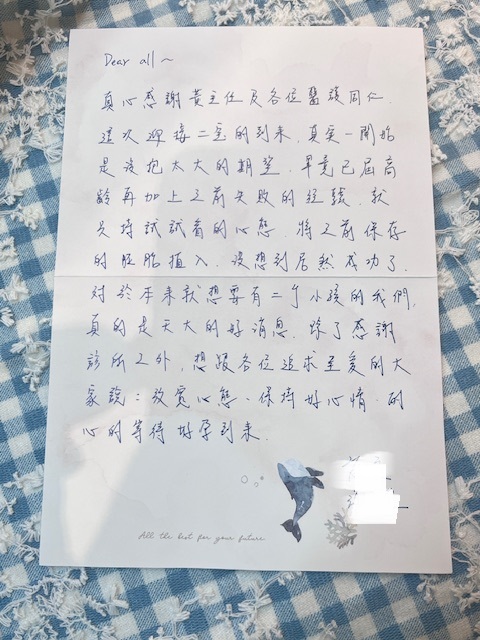 Dear all~
真心感謝黃主任及各位醫護同仁.
這次迎接二寶的到來,真實一開始
是沒抱太大的期望.畢竟已屆高
齡再加上之前失敗的經驗.就
先持試試看的心態.將之前保存
的胚胎植入.沒想到居然成功了.
對於本來就想要有二个小孩的我們,
真的是天大的好消息.除了感謝
診所之外,想跟各位追求至愛的大
家說:放寬心態、保持好心情.耐
心的等待好孕到來.
All the best for your future